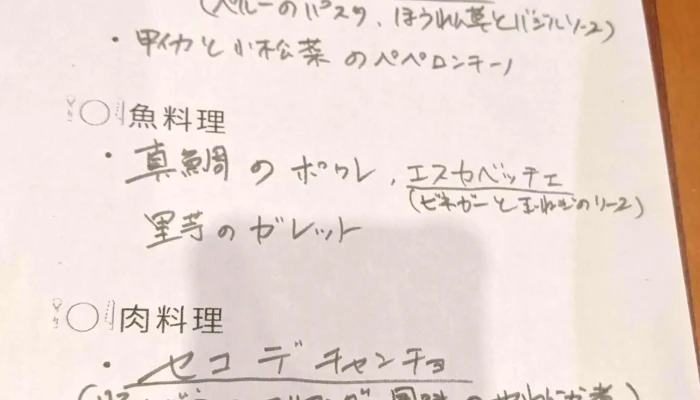 (ペルーのパスタ、ほうれん草とバジルソース)
・甲イカと小松菜のペペロンチーノ
魚料理
・真鯛のポワレ、エスカベッチェ
(ビネガーと玉ねぎのソース)
里芋のガレット
肉料理
・セコデチャンチョ